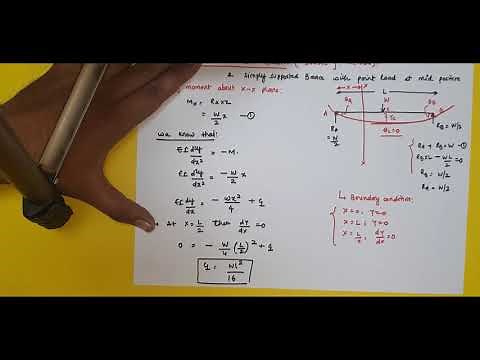 2. Simply Supported Beam with point load at mid
moment about x-x plane:
Mx = RA×x
= W/2 x - ①
We know that:
EI d²y/dx² = -M
EI d²y/dx² = -W/2 x
EI dy/dx = -Wx²/4 + C1
At x = L/2 then dy/dx = 0
0 = -W/4 (L/2)² + C1
C1 = WL²/16
x
L
W
A
B
θA
θB
yc
θc=0
RA = W/2
RB = W/2
RA + RB = W - ①
RB×L - WL/2 = 0
RB = W/2
RA = W/2
↳ Boundary condition:
x=0, y=0
x=L, y=0
x=L/2, dy/dx=0